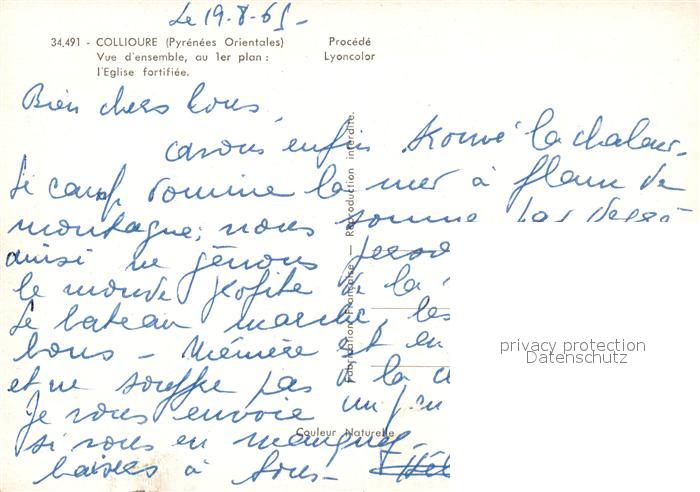 Le 19.8.65-
34.491 - COLLIOURE (Pyrénées Orientales)
Vue d'ensemble, au 1er plan :
l'Eglise fortifiée.
Procédé
Lyoncolor
Bien chers tous,
avons enfin trouvé la chaleur.
Le camp domine la mer à flanc de
montagne; nous sommes
ainsi ne gênons
le monde profite de la
Le bateau marche, les
bons - Mémère est en
et ne souffre pas de la
Je vous envoie un peu
si vous en manquez.
baisers à tous-
Fabrication Française — Reproduction interdite.
Couleur Naturelle
privacy protection
Datenschutz